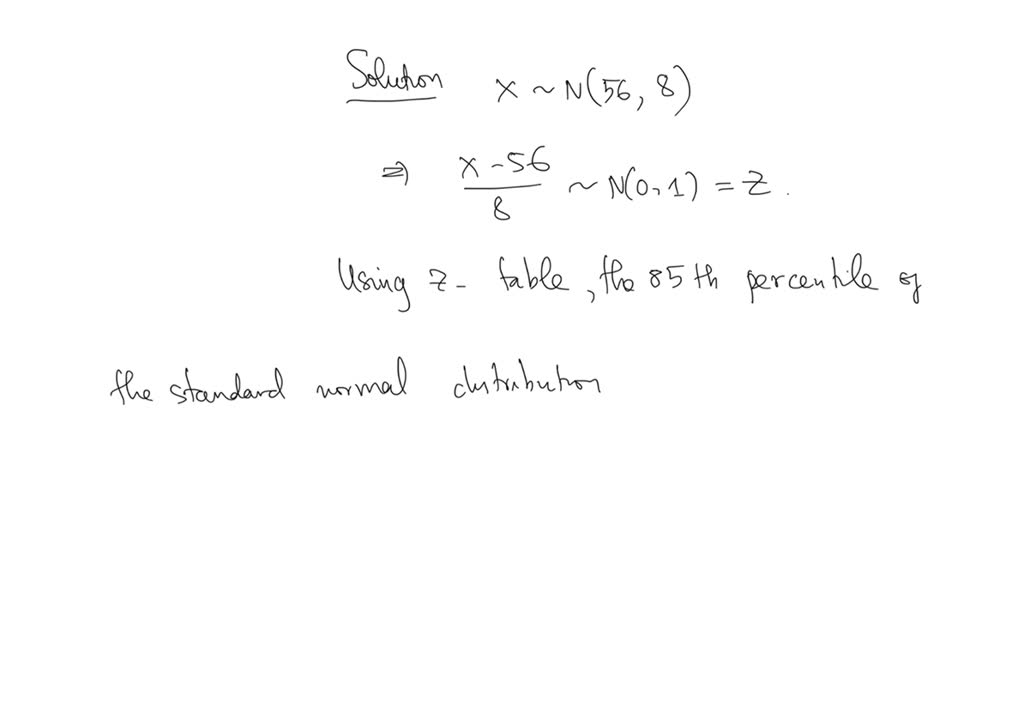 Solution X ~ N(56, 8)
⇒ X - 56 / 8 ~ N(0, 1) = Z.
Using z- table, the 85 th percentile of
the standard normal distribution